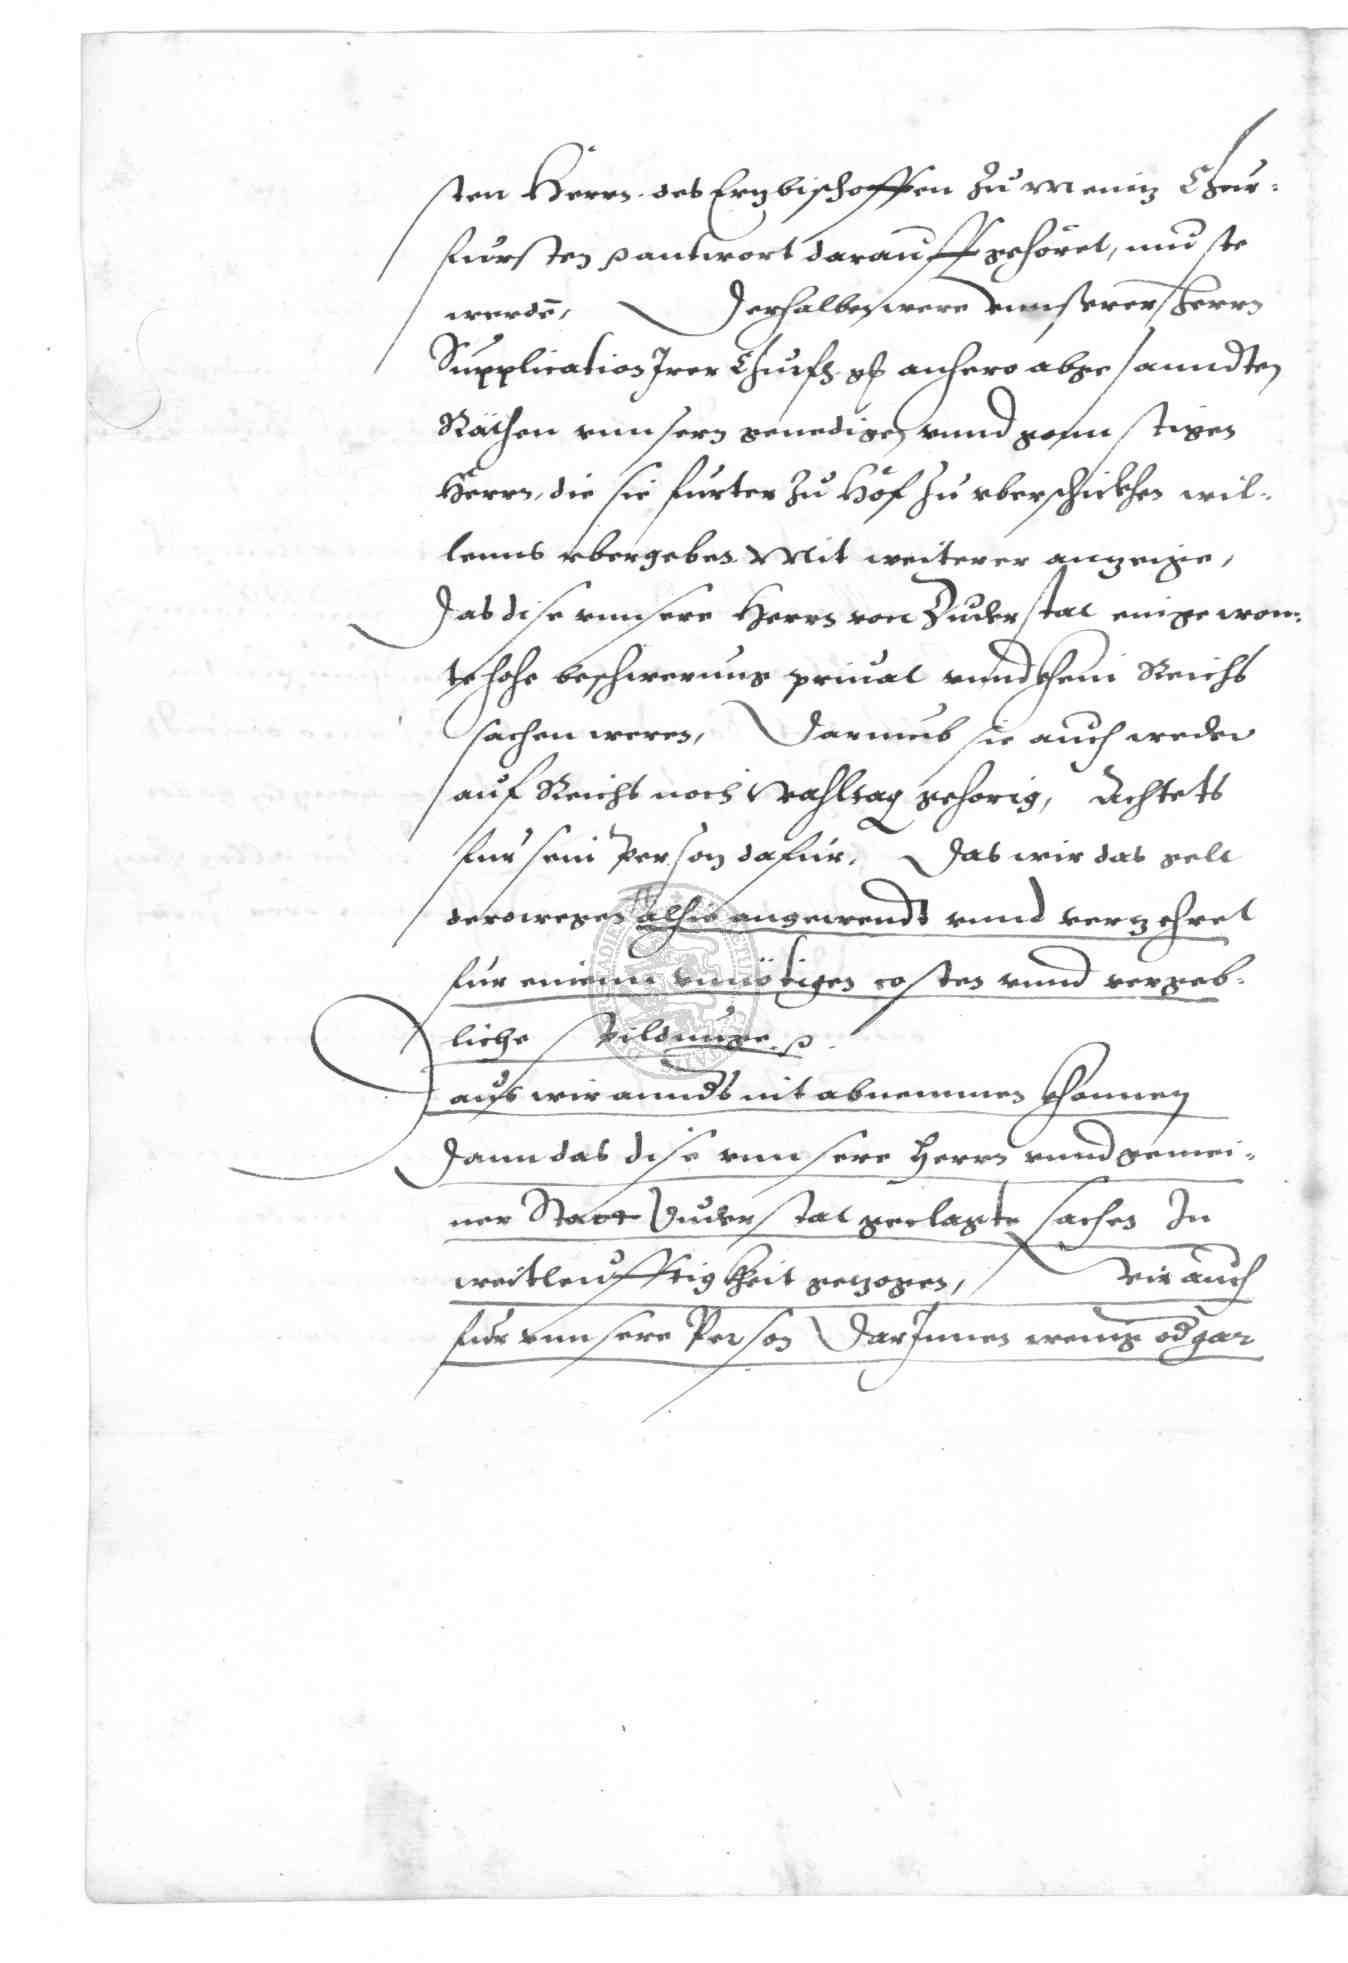 sten Herrn des Ertzbischoffen zu Meintz Chur-
fursten p antwort darauff gehöret, muste
werdē, Derhalben were unnserer Herrn
Supplication Irer Churf. gn. anhero abgesanndten
Räthen unnsern genedigen unnd gonnstigen
Herrn, die sie furter zu Hof zu uberschickhen wil-
lenns ubergeben Mit weiterer anzeige,
Das dise unnsere Herrn von Duderstat eingewon-
te hohe beschwerung privat unnd khein Reichs
sachen weren, Darumb sie auch weder
auf Reichs noch Wahltag gehorig, Achtets
fur sein Person dafur, Das wir das gelt
derowegen alhie angewendt unnd vertzehret
fur einenn unnötigen costen unnd vergeb-
liche p
aus wir annds nit abnemmen khonnen
Dann das dise unnsere Herrn unnd gemei-
ner Statt Duderstat geclagte sachen In
weitleufftigkheit getzogen, Wir auch
fur unnsere Person Darinnen wenig od gar